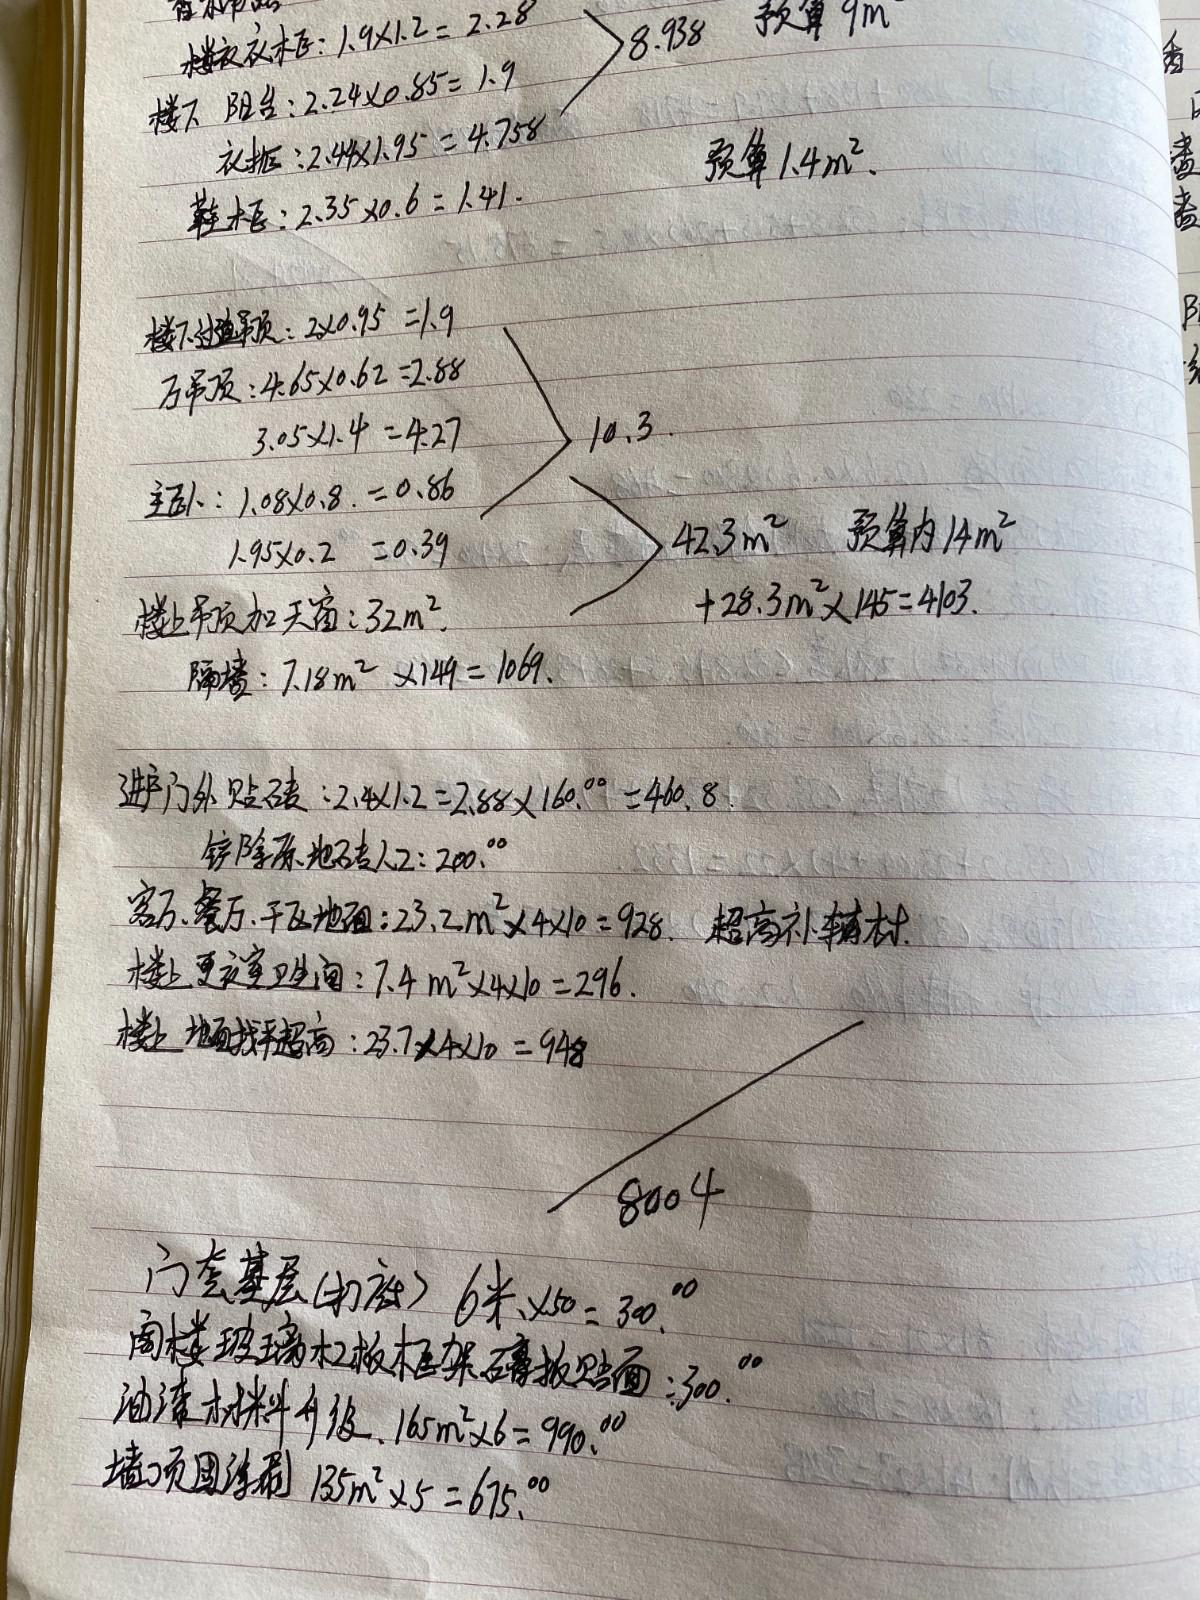 楼衣衣柜：1.9×1.2=2.28
8.938 预算9m²
楼下 阳台：2.24×0.85=1.9
衣柜：2.44×1.95=4.758
预算1.4m².
鞋柜：2.35×0.6=1.41.
楼下过道吊顶：2×0.95=1.9
厅吊顶：4.65×0.62=2.88
3.05×1.4=4.27
10.3.
主卧：1.08×0.8.=0.86
1.95×0.2=0.39
42.3m² 预算内14m²
楼上吊顶加天窗：32m².
+28.3m²×145=4103.
隔墙：7.18m²×149=1069.
进户门外贴砖：2.4×1.2=2.88×160.00=460.8.
铲除原地砖人工：200.00
客厅、餐厅、干区地面：23.2m²×4×10=928. 超高补辅材.
楼上更衣室卫生间：7.4m²×4×10=296.
楼上地面找平超高：23.7×4×10=948
8004
门套基层(打底) 6米×50=300.00
阁楼玻璃木工板框架石膏板贴面：300.00
油漆材料升级、165m²×6=990.00
墙顶固涂刷 135m²×5=675.00